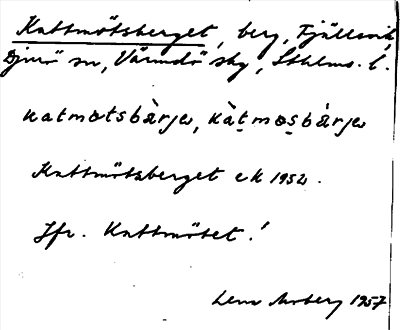 Kattmötsberget, berg, Fjällsvik,
Djurö sn, Värmdö skg, Sthlms. l.
katmotsbàrjə, kàt̠mos̠bàrjə
Kattmötsberget ek 1952.
Jfr. Kattmötet!
Lena Moberg 1957